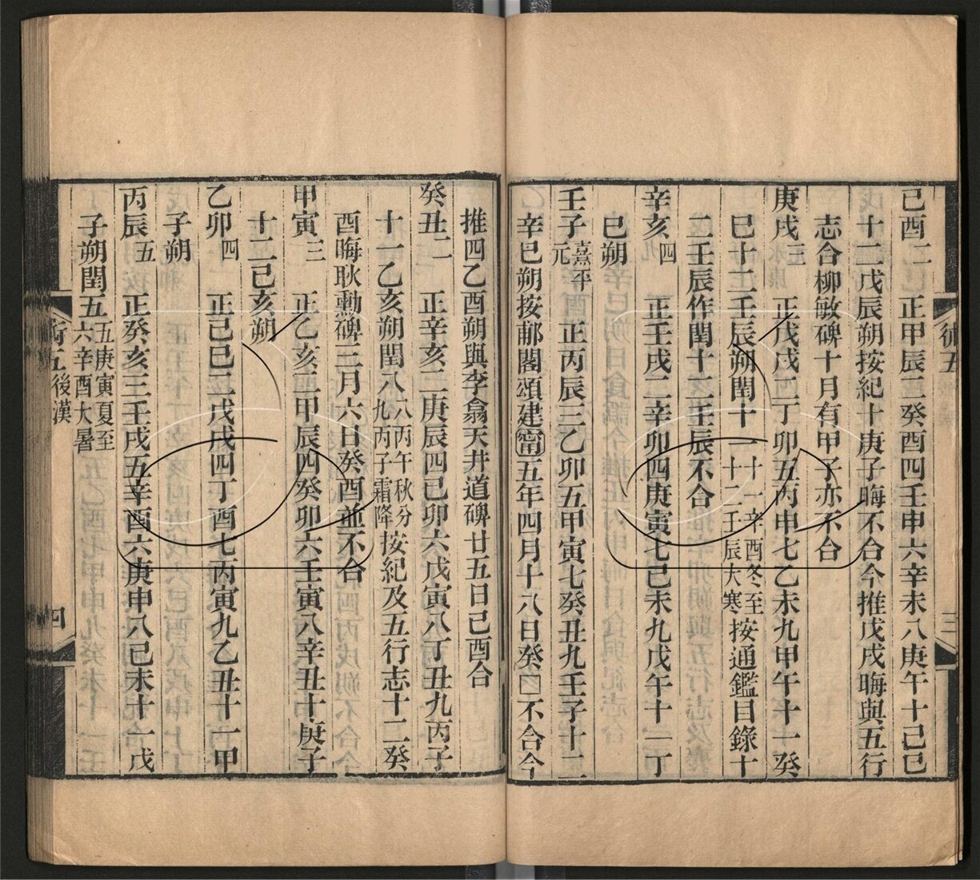 己酉二　正甲辰二癸酉四壬申六辛未八庚午十己巳
十二戊辰朔按紀十庚子晦不合今推戊戌晦與五行
志合柳敏碑十月有甲子亦不合
庚戌三　正戊戌二丁卯五丙申七乙未九甲午十一癸
巳十二壬辰朔閏十一十一辛酉冬至十二壬辰大寒按通鑑目錄十
二壬辰作閏十二壬辰不合
辛亥四　正壬戌二辛卯四庚寅七己未九戊午十一丁
巳朔
壬子熹平元　正丙辰三乙卯五甲寅七癸丑九壬子十二
辛巳朔按郙閣頌建寍五年四月十八日癸□不合今
推四乙酉朔與李翕天井道碑廿五日己酉合
癸丑二　正辛亥二庚辰四己卯六戊寅八丁丑九丙子
十一乙亥朔閏八八丙午秋分九丙子霜降按紀及五行志十二癸
酉晦耿勳碑三月六日癸酉並不合
甲寅三　正乙亥二甲辰四癸卯六壬寅八辛丑十庚子
十二己亥朔
乙卯四　正己巳二戊戌四丁酉七丙寅九乙丑十一甲
子朔
丙辰五　正癸亥三壬戌五辛酉六庚申八己未十一戊
子朔閏五五庚寅夏至六辛酉大暑
術五後漢
四